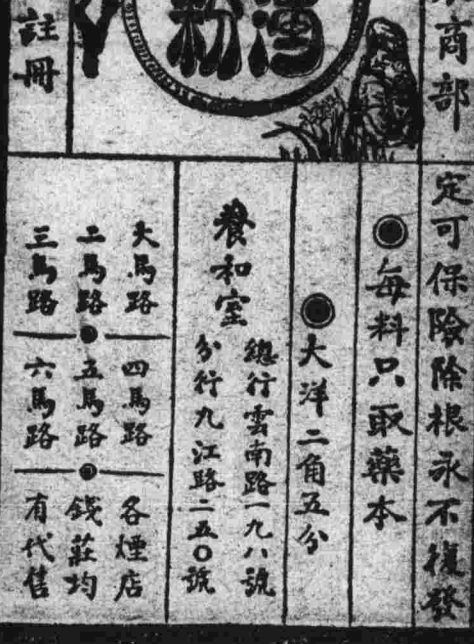 商部
濁粉
註冊
定可保險除根永不復發
每料只取藥本
大洋二角五分
養和室
總行雲南路一九八號
分行九江路二五〇號
大馬路
二馬路
三馬路
四馬路
五馬路
六馬路
各煙店
錢莊均
有代售